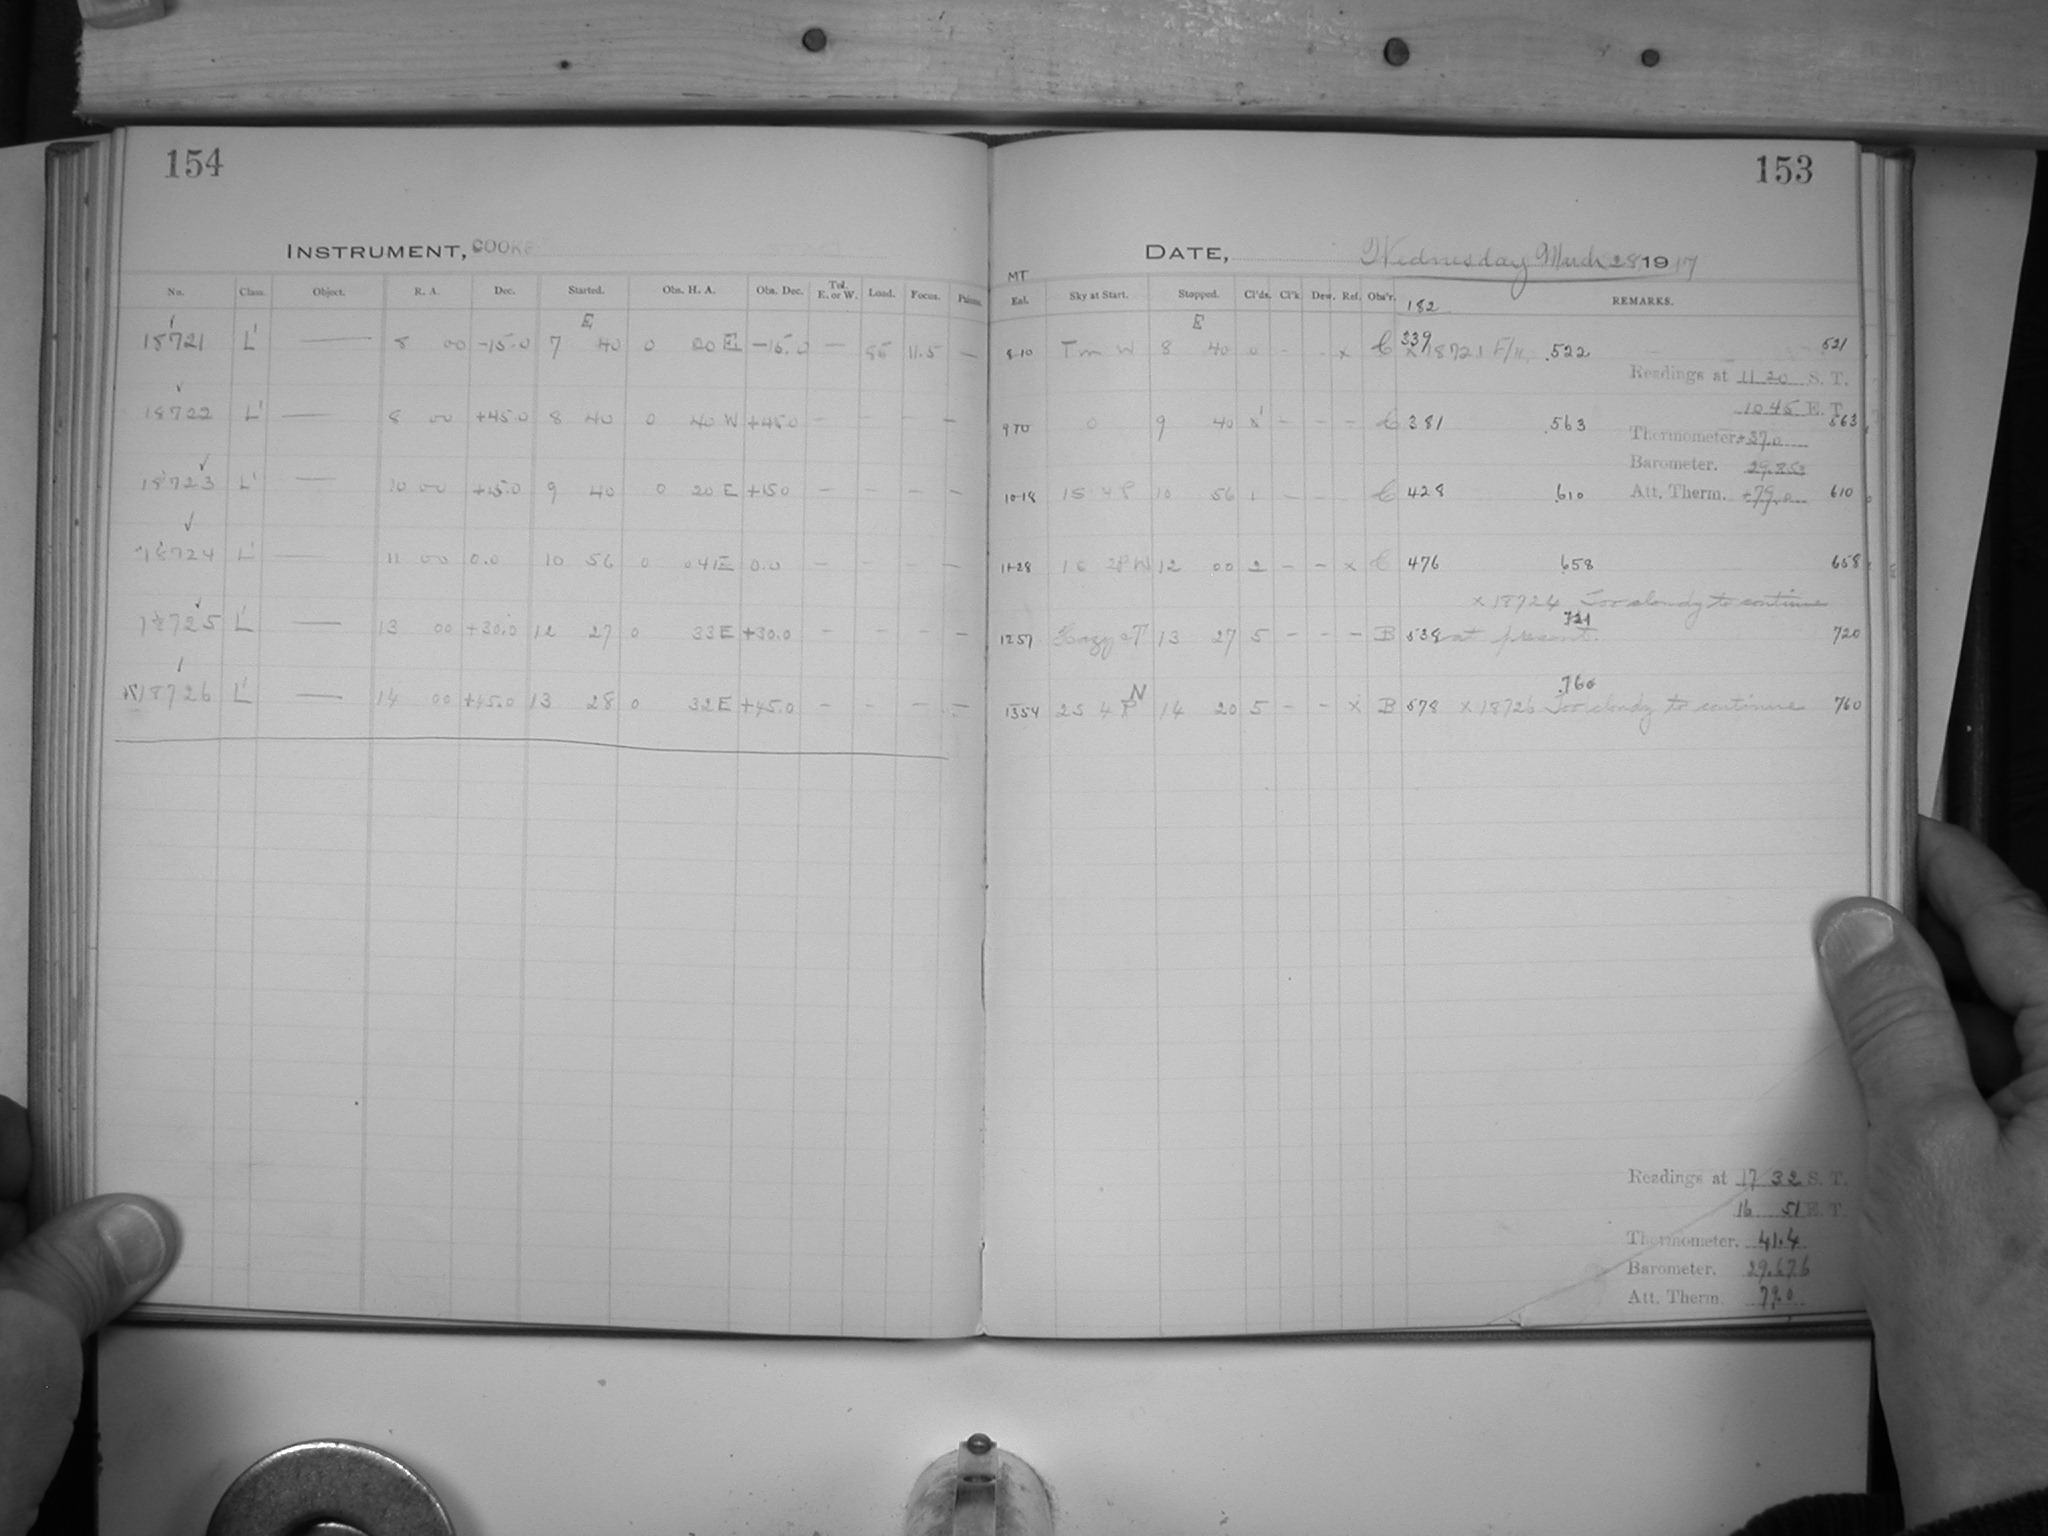 154
INSTRUMENT, COOKE
No. Class. Object. R. A. Dec. Started. Obs. H. A. Obs. Dec. Tel. E. or W. Load. Focus.
E
18721 L' — 8 00 -15.0 7 40 0 20 E -15.0 — 85 11.5 —
18722 L' — 8 00 +45.0 8 40 0 40 W +45.0 — — — —
18723 L' — 10 00 +15.0 9 40 0 20 E +15.0 — — — —
18724 L' — 11 00 0.0 10 56 0 04 E 0.0 — — — —
18725 L' — 13 00 +30.0 12 27 0 33 E +30.0 — — — —
18726 L' — 14 00 +45.0 13 28 0 32 E +45.0 — — — —
153
DATE, Wednesday March 28 1917
MT
Sky at Start. Stopped. Cl'ds. Cl'k. Dew. Ref. Obs'r. REMARKS.
182
E
8 10 Tm W 8 40 0 - - x C 339 x 18721 F/11, .522 521
Readings at 11 20 S. T.
10 45 E. T.
0 9 40 x' - - - C 381 .563 563
Thermometer +37.0
Barometer. 29.853
Att. Therm. +79.0
10 18 10 56 1 - - C 428 .610 610
11 28 12 00 2 - - x C 476 .658 658
x 18724 Too cloudy to continue
12 57 Hazy 13 27 5 - - - B 538 at present. .721 720
13 54 14 20 5 - - x B 578 x 18726 Too cloudy to continue .760 760
Readings at 17 32 S. T.
16 51 E. T.
Thermometer. 41.4
Barometer. 29.676
Att. Therm. 79.0